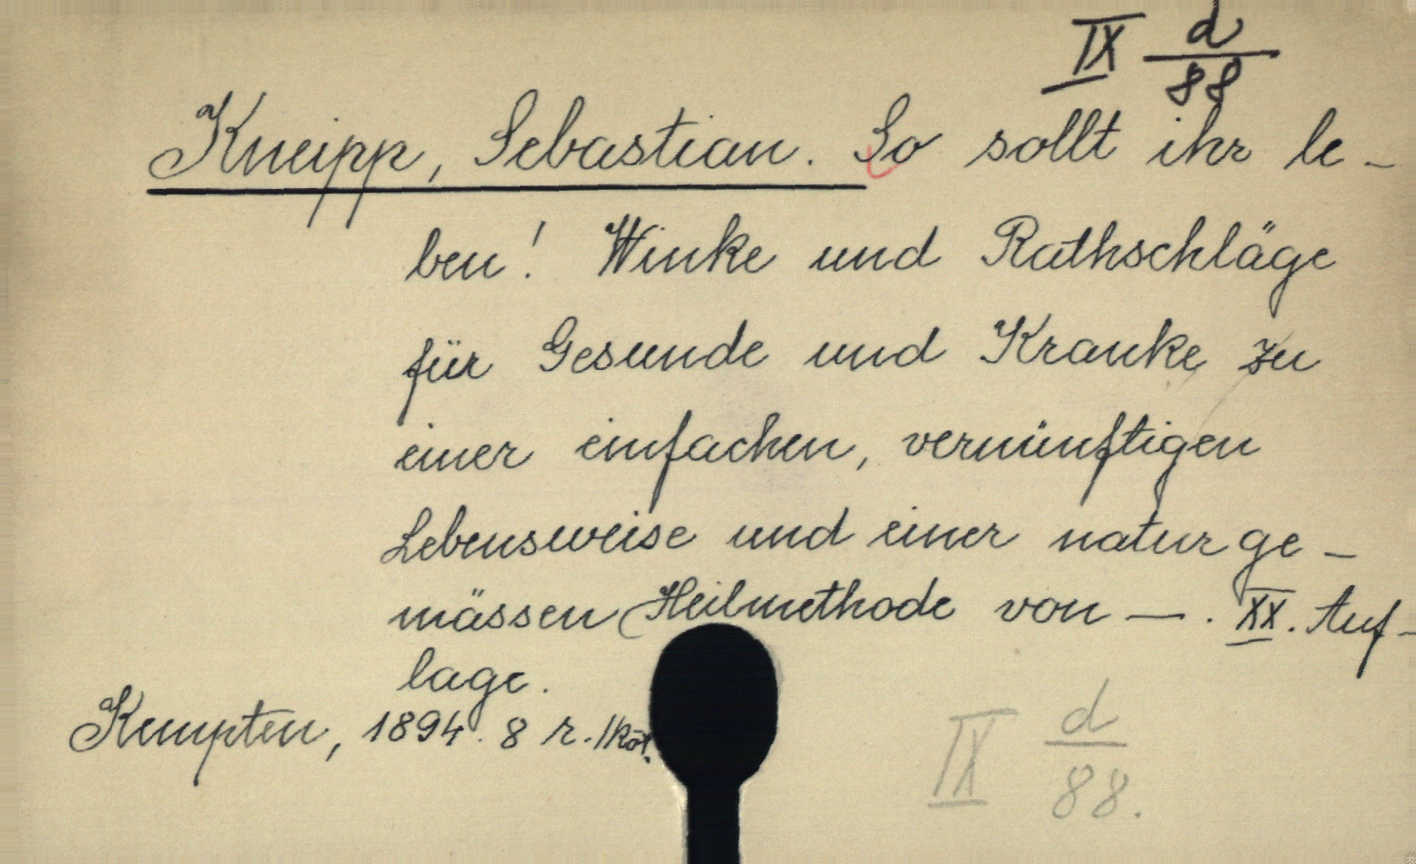 IX d/88
Kneipp, Sebastian. So sollt ihr le-
ben! Winke und Rathschläge
für Gesunde und Kranke zu
einer einfachen, vernünftigen
Lebensweise und einer naturge-
mässen Heilmethode von —. XX. Auf-
lage.
Kempten, 1894. 8 r. 1 köt.
IX d/88.